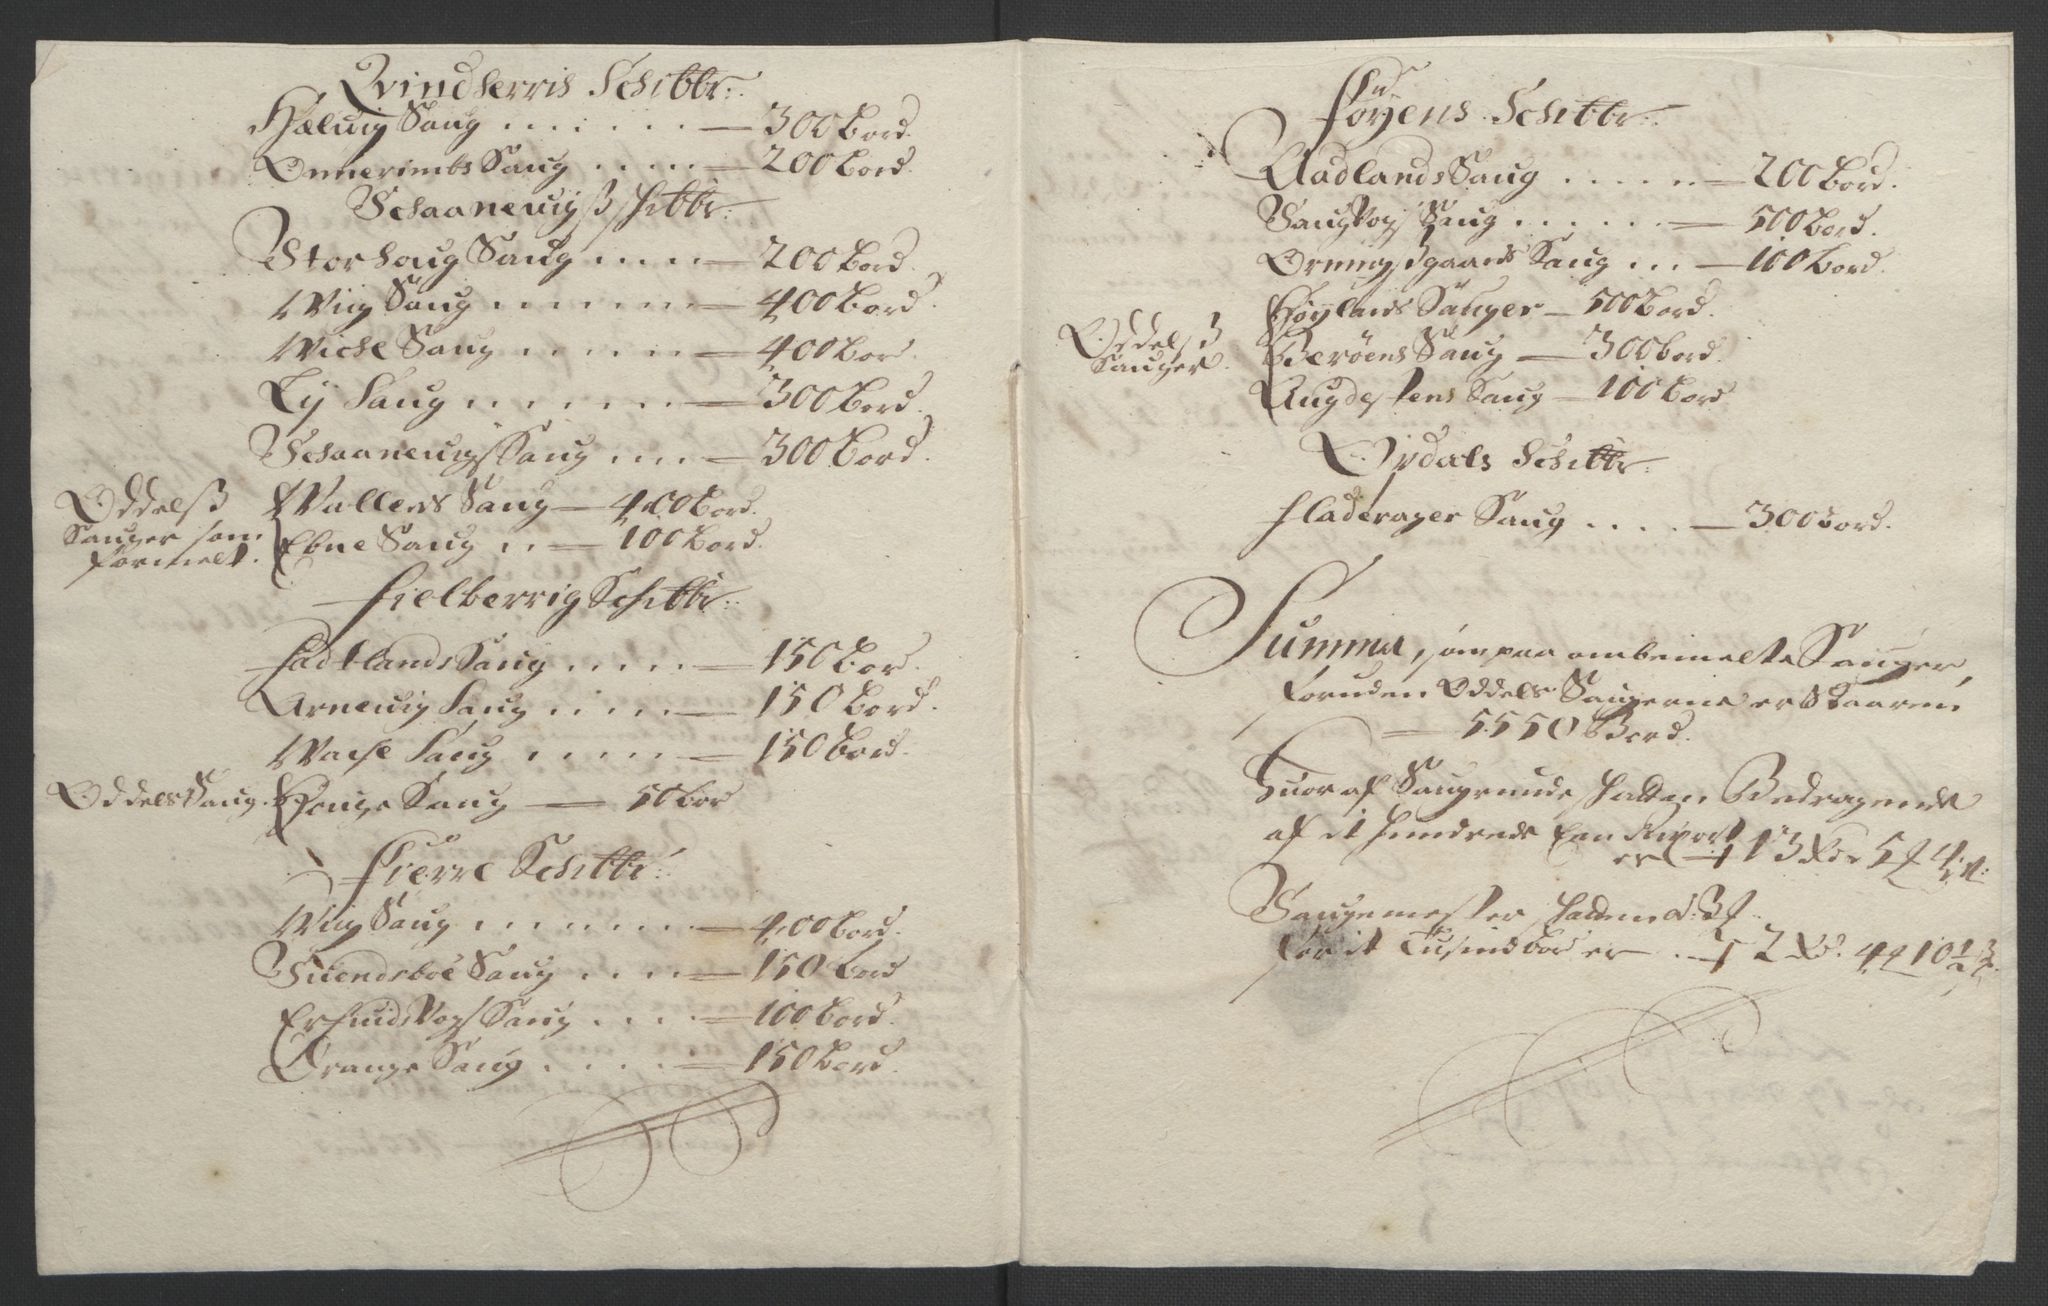 Qvindherris Schibbr:
Hælvig Saug . . . . . . . — 300 Bord.
Onnerimbs Saug . . . . . — 200 Bord.
Schaanevigs schibbr:
Storhoug Saug . . . . . — 200 Bord.
Wiig Saug . . . . . . . — 400 Bord.
Wiche Saug . . . . . . — 400 Bord.
Ly Saug . . . . . . . — 300 Bord.
Schaanevigs Saug . . . . — 300 Bord.
Oddelss Sauger som formelt.
Wallens Saug — 400 Bord.
Ebne Saug . . — 100 Bord.
Fielberrig Schibbr:
Hadtlands Saug . . . . . — 150 Bord.
Arnevig Saug . . . . . — 150 Bord.
Waese Saug . . . . . — 150 Bord.
Oddels Saug. Houge Saug — 50 Bord
Fierre Schibbr:
Wiig Saug . . . . . . . — 400 Bord.
Svendsboe Saug . . . . — 150 Bord
Erfuids Vogs Saug . . . . — 100 Bord.
Ørange Saug . . . . . — 150 Bord.
Føyens Schibbr:
Aadlands Saug . . . . . — 200 Bord.
Saugvogs Saug . . . . . . — 500 Bord.
Orningsgaards Saug . . . — 100 Bord.
Oddelss Sauger.
Høylands Sauger — 500 Bord.
Berøens Saug — 300 bord.
Augdestens Saug — 100 Bord
Opdals Schibbr:
Fladerager Saug . . . . — 300 Bord.
Summa, som paa ombemelte Sauger,
foruden Oddels Saugerne er Skaaren
— 5550 Bord.
Huor af Saugernide hatten Bedragende
af it hundrede Een Rixort
er — 13 Rdr 5 ₰ 4 s:
Saugemester hatten a: 3 ₰
for it Tusind bord er — 2 Rd. 4 ₰ 10 1/2 s.